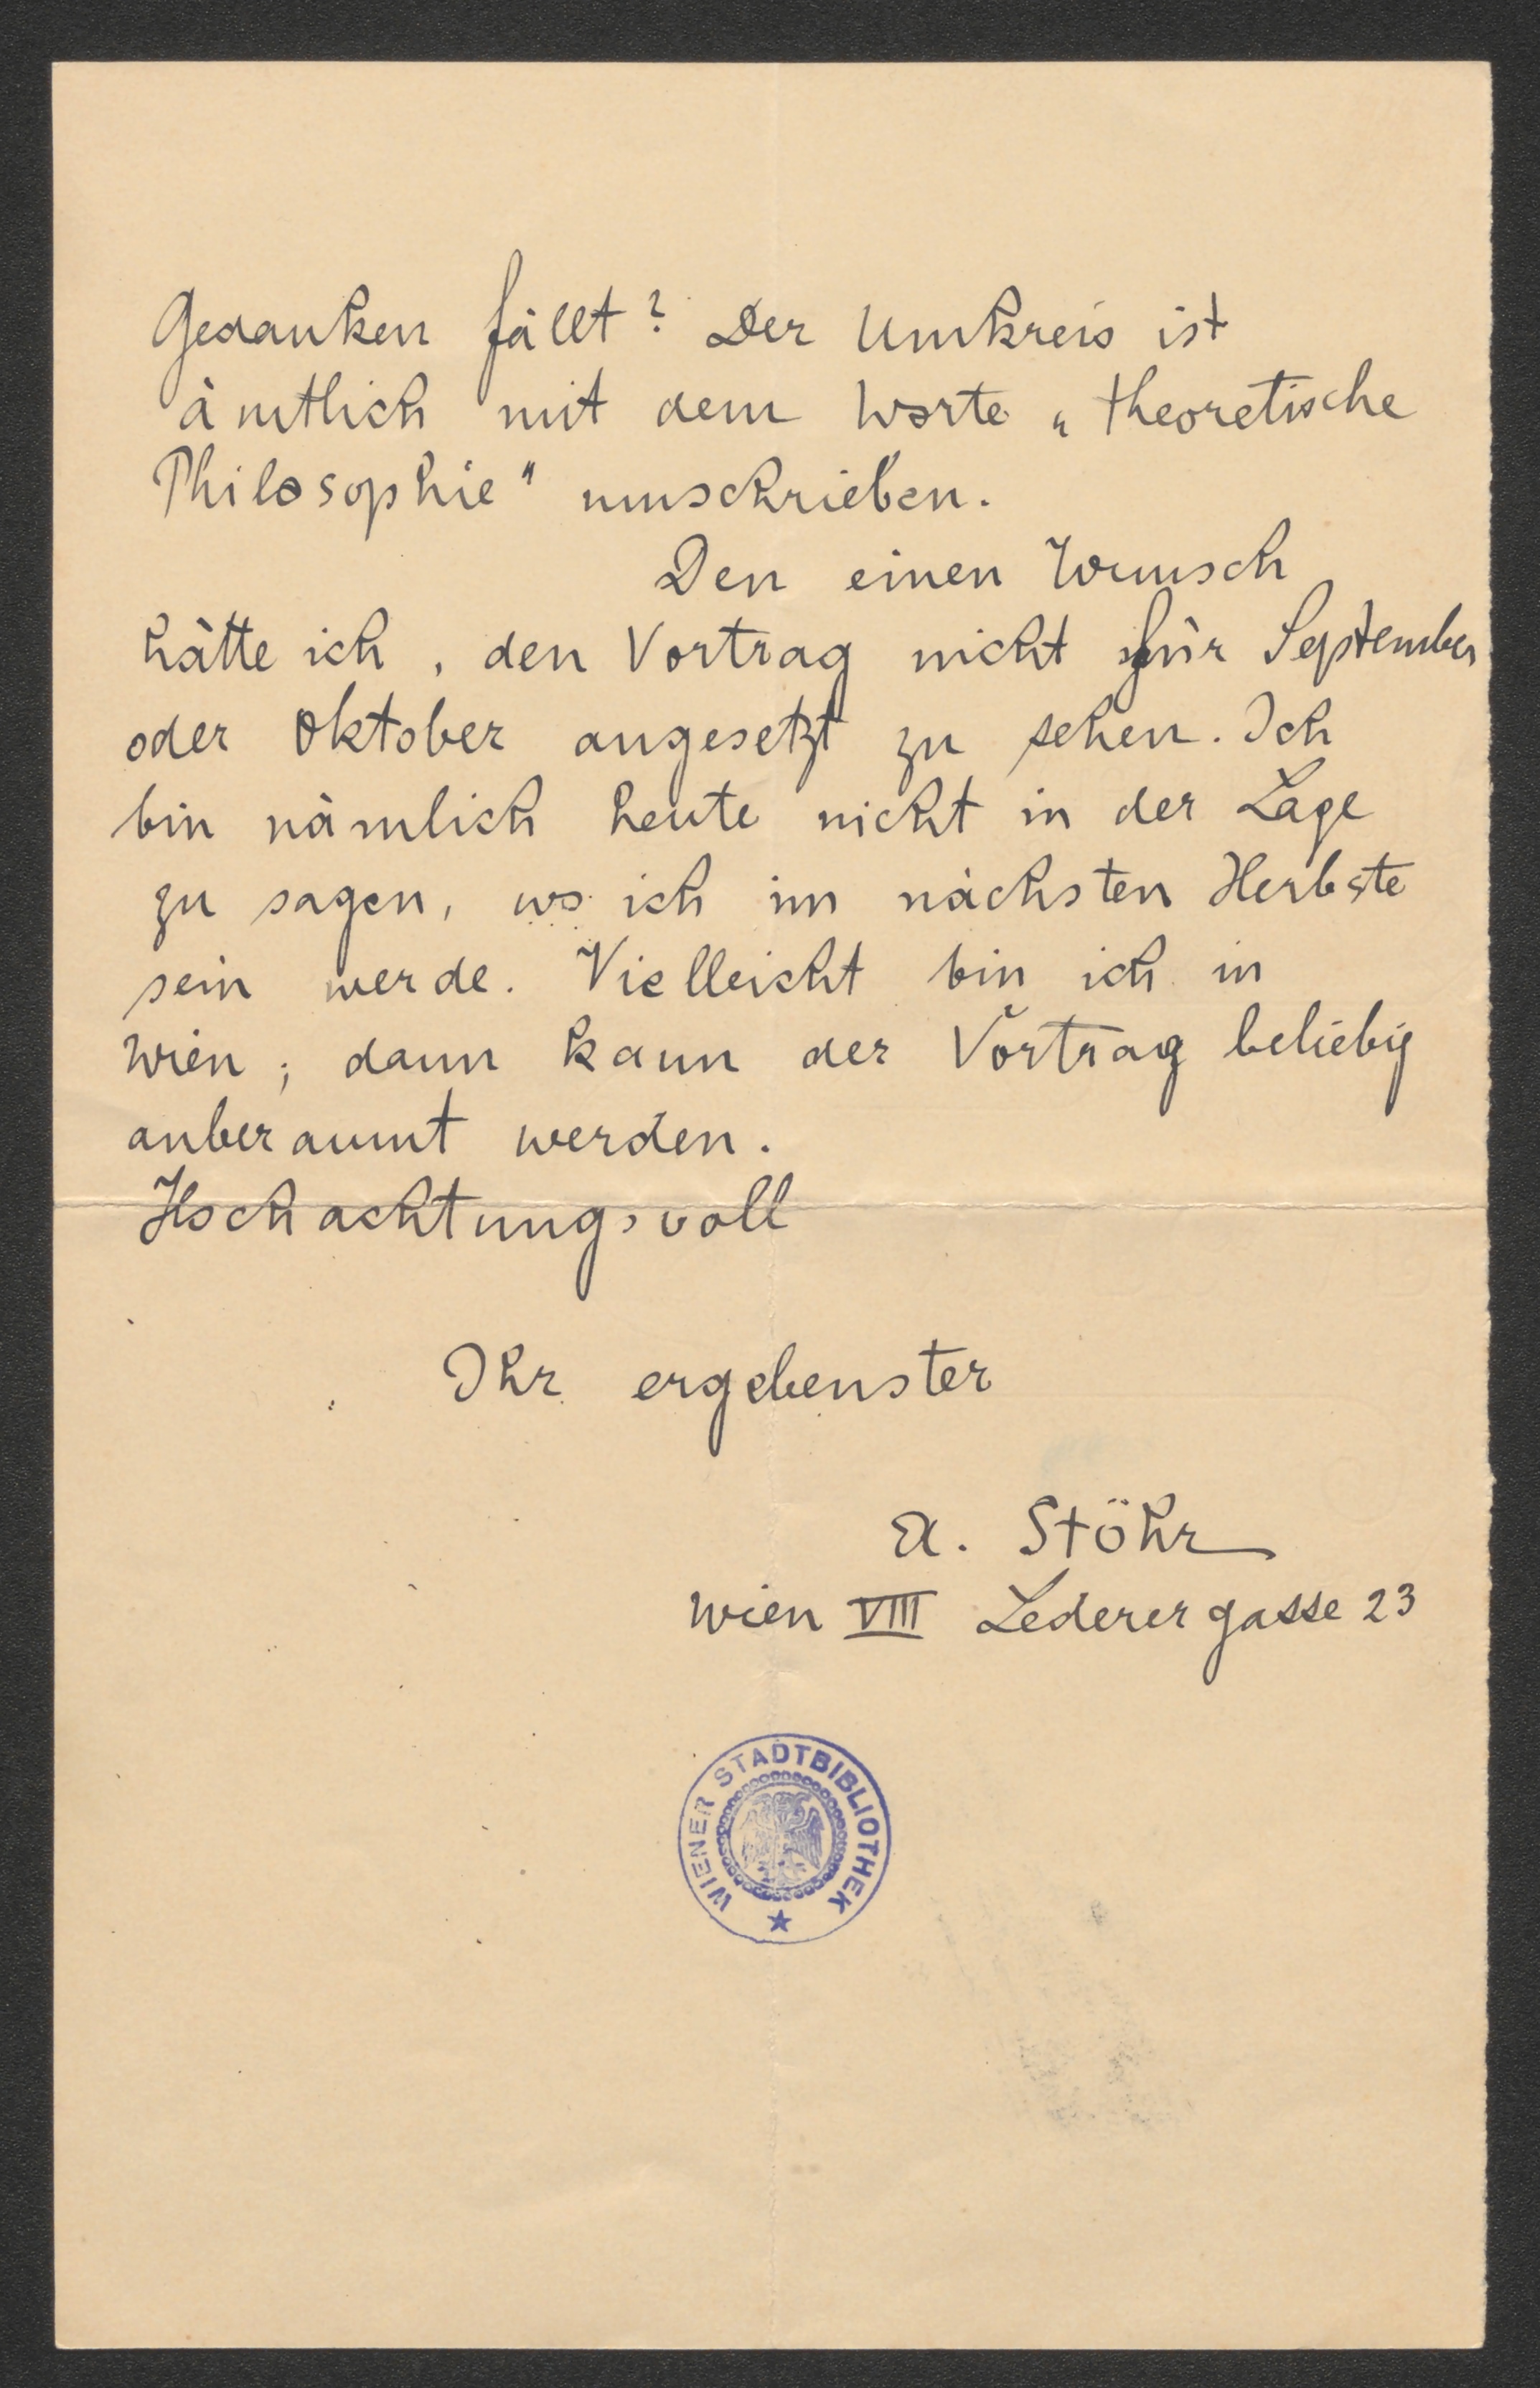 Gedanken fällt? Der Umkreis ist
ämtlich mit dem Worte „theoretische
Philosophie" umschrieben.
Den einen Wunsch
hätte ich, den Vortrag nicht für September
oder Oktober angesetzt zu sehen. Ich
bin nämlich heute nicht in der Lage
zu sagen, wo ich im nächsten Herbste
sein werde. Vielleicht bin ich in
Wien; dann kann der Vortrag beliebig
anberaumt werden.
Hochachtungsvoll
Ihr ergebenster
A. Stöhr
Wien VIII Lederergasse 23
WIENER STADTBIBLIOTHEK